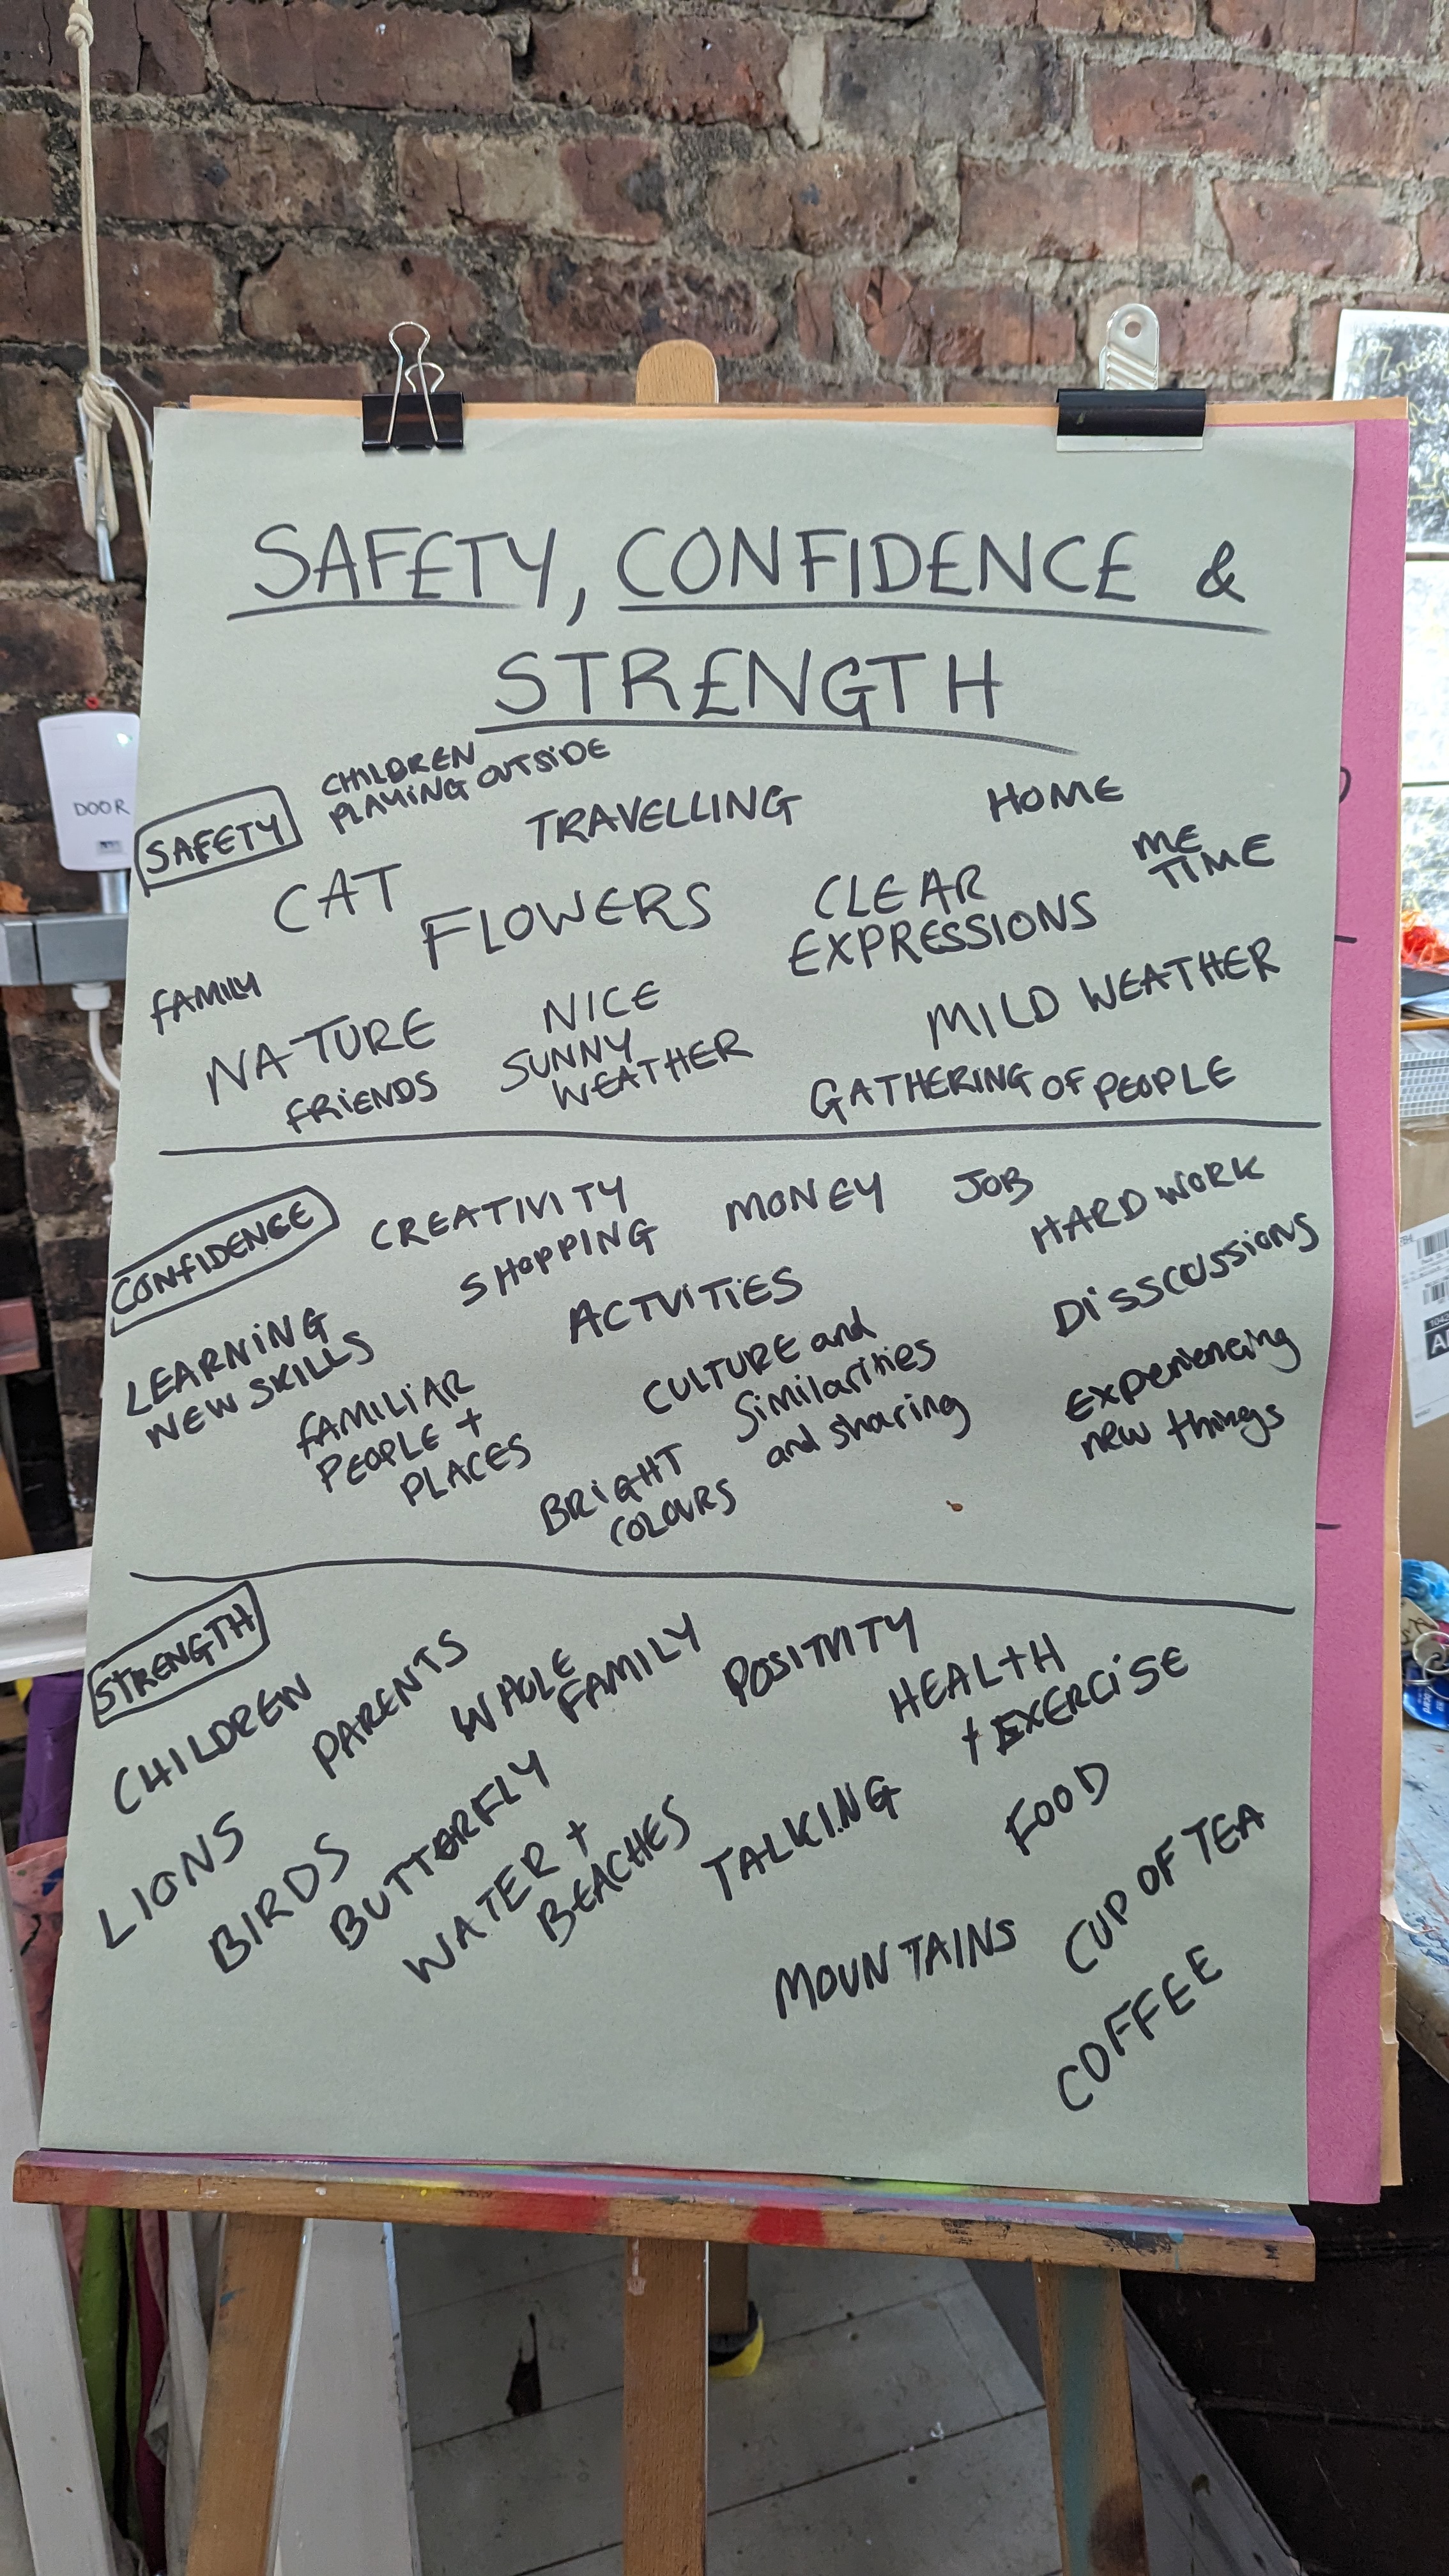 SAFETY, CONFIDENCE &
STRENGTH
SAFETY
CHILDREN
PLAYING OUTSIDE
TRAVELLING
HOME
ME
TIME
CAT
FLOWERS
CLEAR
EXPRESSIONS
FAMILY
NATURE
FRIENDS
NICE
SUNNY
WEATHER
MILD WEATHER
GATHERING OF PEOPLE
CONFIDENCE
CREATIVITY
SHOPPING
MONEY
JOB
HARD WORK
ACTVITIES
DISSCUSSIONS
LEARNING
NEW SKILLS
FAMILIAR
PEOPLE +
PLACES
CULTURE and
similarities
and sharing
BRIGHT
COLOURS
Experiencing
new things
STRENGTH
CHILDREN
PARENTS
WHOLE
FAMILY
POSITIVITY
HEALTH
+ EXERCISE
LIONS
BIRDS
BUTTERFLY
WATER +
BEACHES
TALKING
FOOD
MOUNTAINS
CUP OF TEA
COFFEE
DOOR